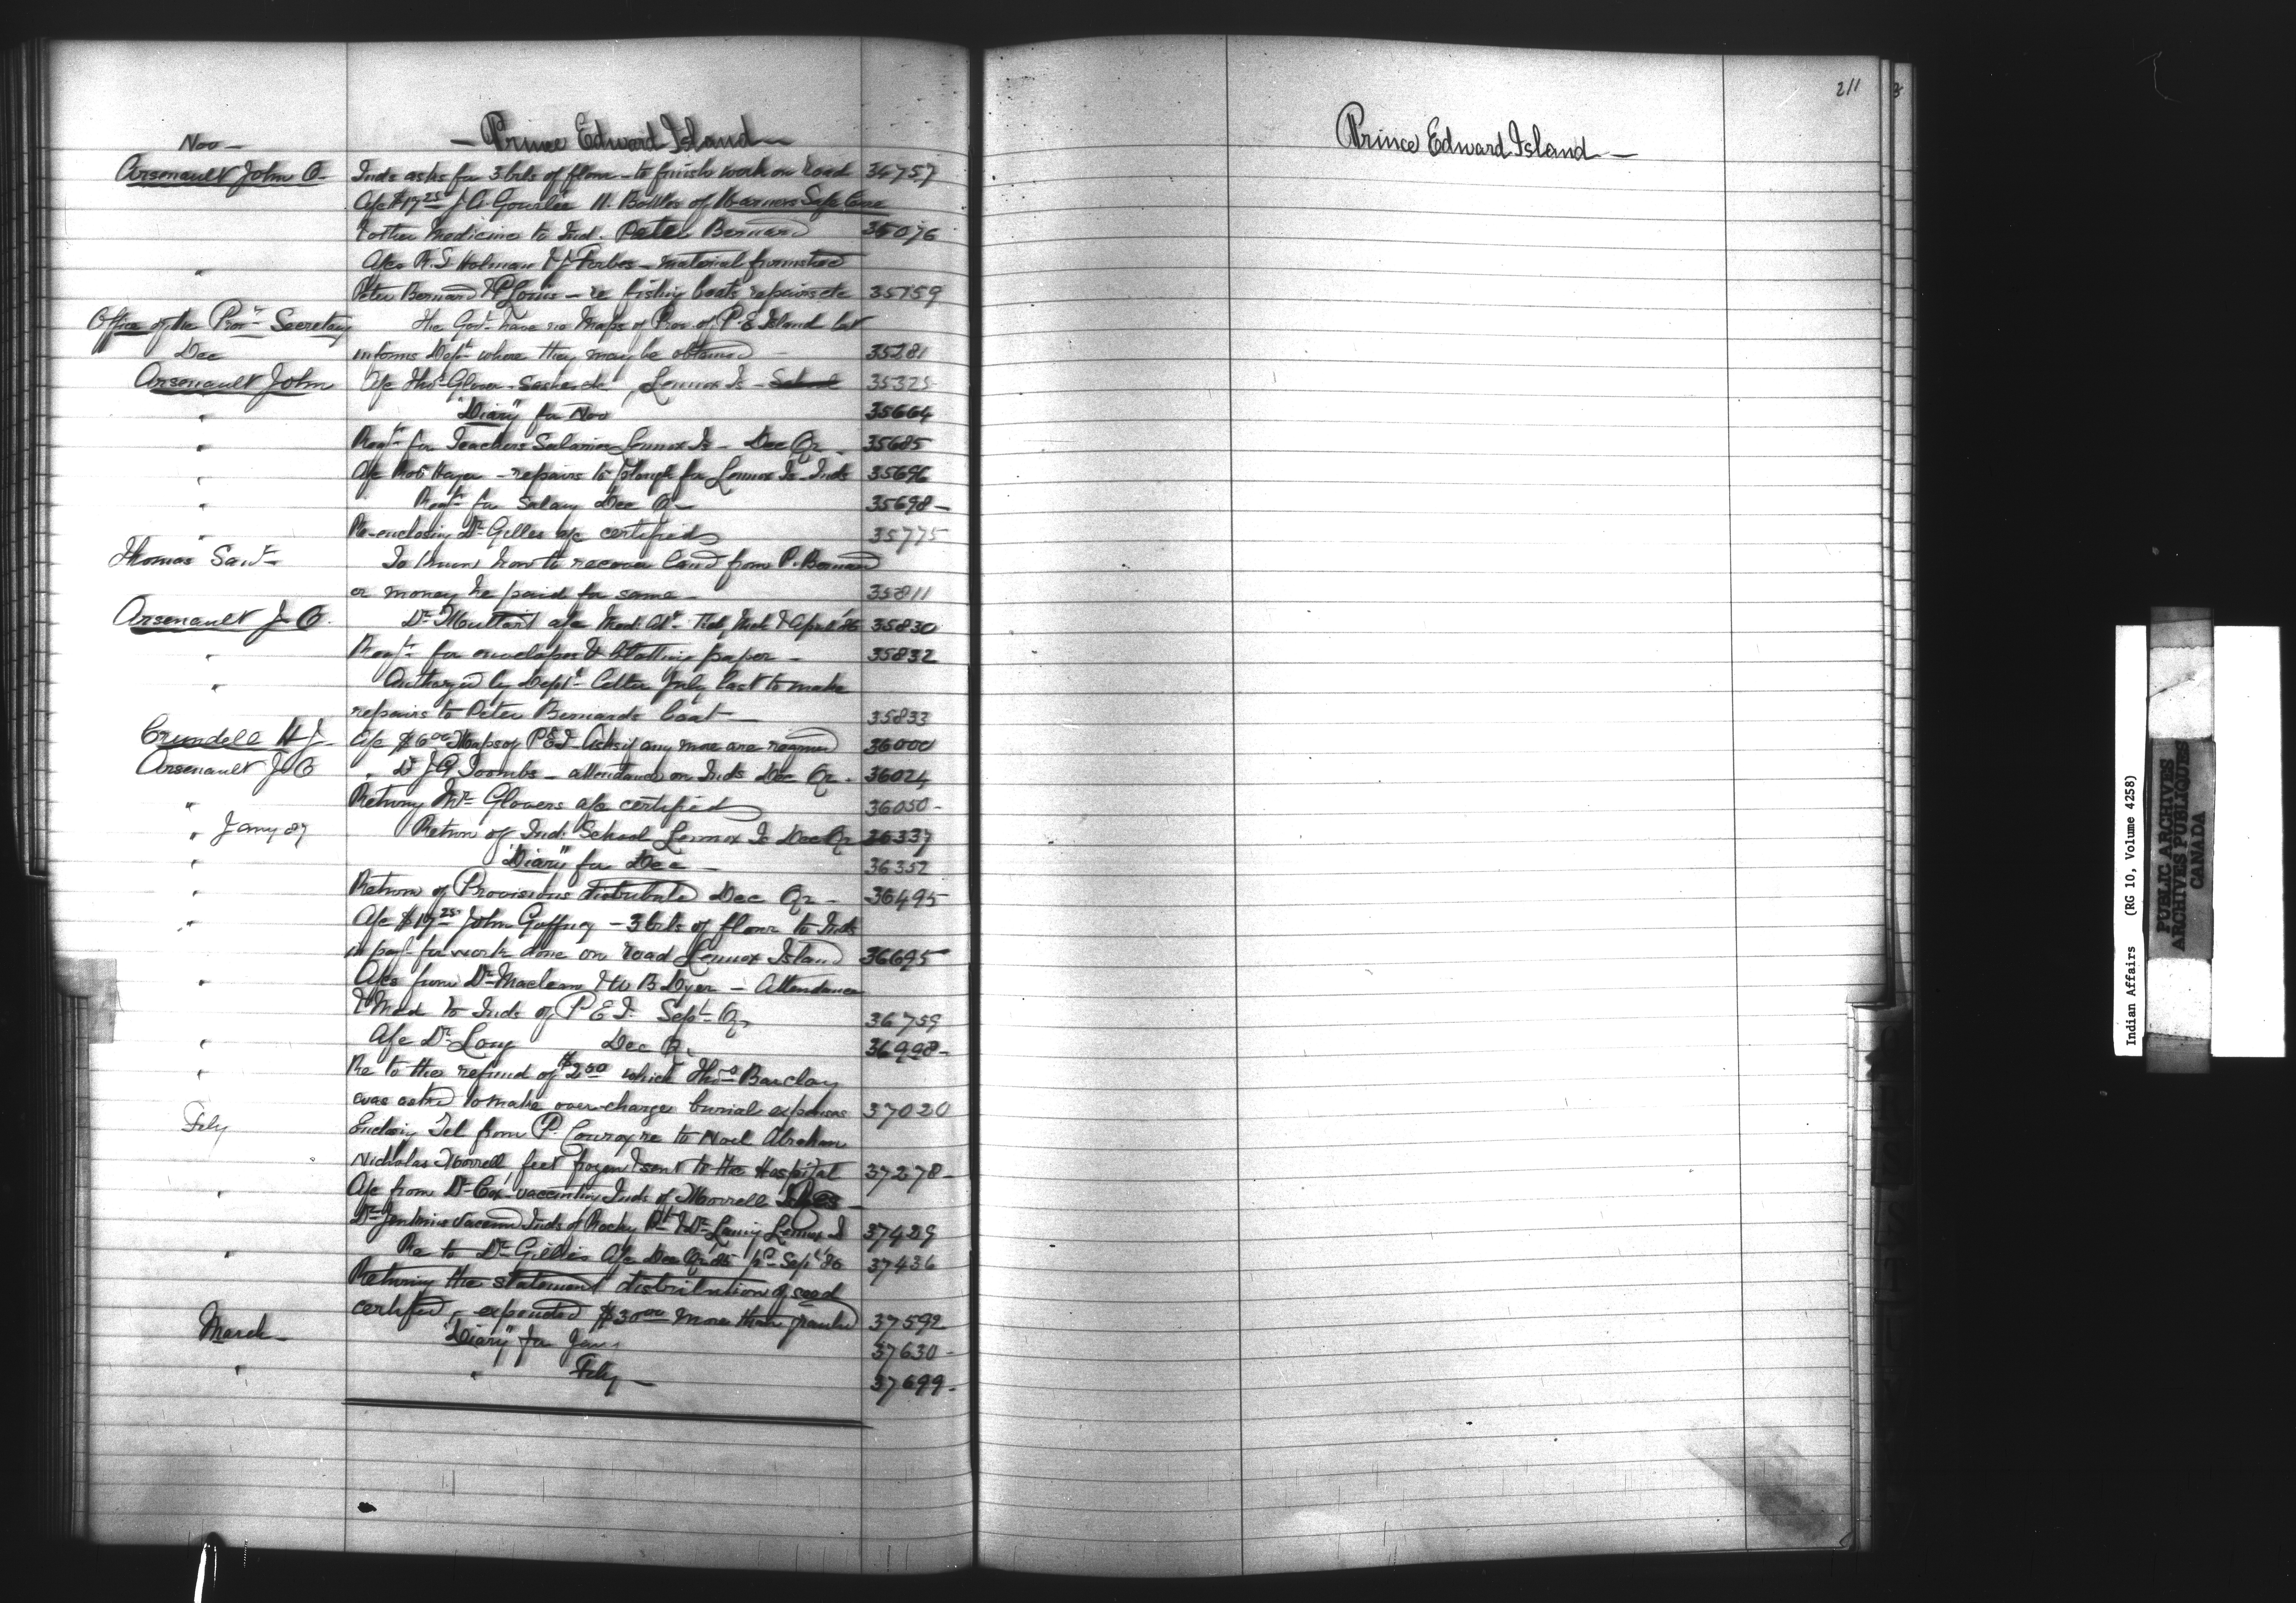 Nov —
— Prince Edward Island —
Arsenault John O. Inds asks for 3 brls of flour - to finish work on road 34757
A/c $17 25 J A Gourlie 11. Bottles of Warners Safe Cure
& other Medicine to Ind. Peter Bernard 35076
" A/cs R. T Holman & J. Forbes - material furnished
Peter Bernard & P Louis - re fishing boats repairs etc 35159
Office of the Provl Secretary The Govt have no Maps of Prov of P. E Island but
Dec informs Dept where they may be obtained — 35281
Arsenault John A/c Thos Glover - Sashes etc, Lennox Is - School 35325
" "Diary" for Nov 35664
" Reqt for Teachers Salaries Lennox Is - Dec Qr - 35685
" A/c Robt - repairs to plough for Lennox Is Inds 35696
" Reqt for Salary Dec Qr 35698 -
" Re-enclosing Dr Gillis a/c certified 35775
Thomas To know how to recover land from P. Bernard
or money he paid for same - 35811
Arsenault J. O. Dr Muttart a/c Med. At. Feby Mch & April '86 35830
" Reqt for envelopes & blotting paper - 35832
" Authorized by Dept letter July last to make
repairs to Peter Bernards boat — 35833
Crundell H J - A/c $6 00 Maps of P E I - Asks if any more are required 36000
Arsenault J. O " Dr J G Toombs - attendance on Inds Dec Qr - 36024
" Returng Mr Glovers a/c certified 36050 -
" Jany 87 Return of Ind. School Lennox Is Dec Qr 36337
" "Diary" for Dec — 36352
" Return of Provisions distributed Dec Qr - 36495
" A/c $17 25 John Gaffney - 3 brls of flour to Inds
in payt for work done on road Lennox Island 36695
" A/cs from Dr Maclean & W B Dyer - Attendance
& Med to Inds of P E I. Sept Qr 36759
" A/c Dr Long Dec Qr. 36998 -
" Re to the refund of $2 50 which Thos Barclay
was asked to make over-charge burial expenses 37020
Feby Enclosing Tel from P. Conroy re to Noel Abraham
Nicholas Morrell, feet frozen & sent to the Hospital 37278 -
" A/c from Dr Cox - vaccinating Inds of Morrell
Dr Jenkins vaccind Inds of Rocky Pt & Dr Lennox I 37429
" Re to Dr Gillis A/c Dec Qr 85 pd Sept 86 37436
Returning the statement distribution of seed
certified, expended $30 00 more than granted 37592
March - "Diary" for Jany 37630 -
" " Feby — 37699 -
211
Prince Edward Island —
Indian Affairs (RG 10, Volume 4258)
PUBLIC ARCHIVES
ARCHIVES PUBLIQUES
CANADA